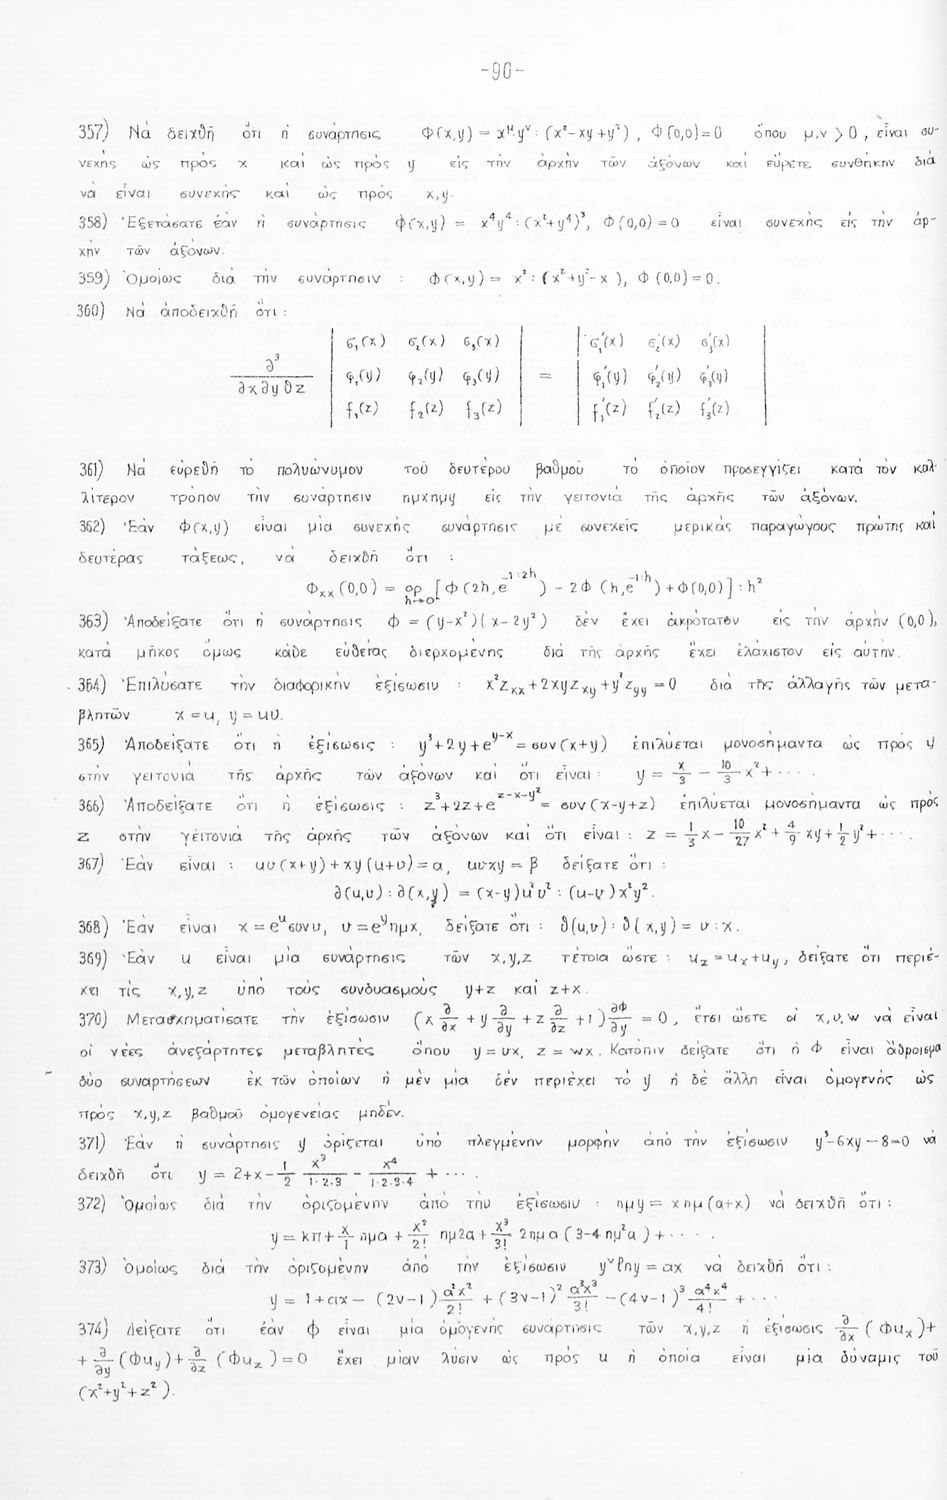 -90-
357) Νά δειχθῆ ὅτι ἡ συνάρτησις Φ(x,y) = x^μ.y^ν : (x²-xy+y²) , Φ(0,0)=0 ὅπου μ,ν > 0 , εἶναι συ-
νεχής ὡς πρός x καί ὡς πρός y εἰς τήν ἀρχήν τῶν ἀξόνων καί εὕρετε συνθήκην διά
νά εἶναι συνεχής καί ὡς πρός x,y.
358) Ἐξετάσατε ἐάν ἡ συνάρτησις φ(x,y) = x⁴y⁴ : (x²+y⁴)³, Φ(0,0) = 0 εἶναι συνεχής εἰς τήν ἀρ-
χήν τῶν ἀξόνων.
359) Ὁμοίως διά τήν συνάρτησιν : Φ(x,y) = x² : (x²+y²-x), Φ(0,0)=0.
360) Νά ἀποδειχθῆ ὅτι :
∂³/∂x∂y∂z | σ₁(x) σ₂(x) σ₃(x) | = | σ₁'(x) σ₂'(x) σ₃'(x) |
| φ₁(y) φ₂(y) φ₃(y) | | φ₁'(y) φ₂'(y) φ₃'(y) |
| f₁(z) f₂(z) f₃(z) | | f₁'(z) f₂'(z) f₃'(z) |
361) Νά εὑρεθῆ τό πολυώνυμον τοῦ δευτέρου βαθμοῦ τό ὁποῖον προσεγγίζει κατά τόν καλ-
λίτερον τρόπον τήν συνάρτησιν ημxημy εἰς τήν γειτονιά τῆς ἀρχῆς τῶν ἀξόνων.
362) Ἐάν Φ(x,y) εἶναι μία συνεχής συνάρτησις μέ συνεχεῖς μερικάς παραγώγους πρώτης καί
δευτέρας τάξεως, νά δειχθῆ ὅτι :
Φₓₓ(0,0) = ορ_{h→0} [Φ(2h,e^{-1:2h}) - 2Φ(h,e^{-1:h}) + Φ(0,0)] : h²
363) Ἀποδείξατε ὅτι ἡ συνάρτησις φ = (y-x²)(x-2y²) δέν ἔχει ἀκρότατον εἰς τήν ἀρχήν (0,0),
κατά μῆκος ὅμως κάθε εὐθείας διερχομένης διά τῆς ἀρχῆς ἔχει ἐλάχιστον εἰς αὐτήν.
364) Ἐπιλύσατε τήν διαφορικήν ἐξίσωσιν : x²z_{xx}+2xyz_{xy}+y²z_{yy} = 0 διά τῆς ἀλλαγῆς τῶν μετα-
βλητῶν x = u, y = uυ.
365) Ἀποδείξατε ὅτι ἡ ἐξίσωσις : y³+2y+e^{y-x} = συν(x+y) ἐπιλύεται μονοσήμαντα ὡς πρός y
στήν γειτονιά τῆς ἀρχῆς τῶν ἀξόνων καί ὅτι εἶναι : y = x/3 - 10/3 x²+ ....
366) Ἀποδείξατε ὅτι ἡ ἐξίσωσις : z³+2z+e^{z-x-y²} = συν(x-y+z) ἐπιλύεται μονοσήμαντα ὡς πρός
z στήν γειτονιά τῆς ἀρχῆς τῶν ἀξόνων καί ὅτι εἶναι : z = 1/3 x - 10/27 x² + 4/9 xy + 1/2 y² + ....
367) Ἐάν εἶναι : uυ(x+y)+xy(u+υ) = α, uυxy = β δείξατε ὅτι :
∂(u,υ) : ∂(x,y) = (x-y)u²υ² : (u-υ)x²y².
368) Ἐάν εἶναι x = e^u συνυ, υ = e^y ημx, δείξατε ὅτι : ∂(u,υ) : ∂(x,y) = υ : x.
369) Ἐάν u εἶναι μία συνάρτησις τῶν x,y,z τέτοια ὥστε : u_z = u_x+u_y, δείξατε ὅτι περιέ-
χει τίς x,y,z ὑπό τούς συνδυασμούς y+z καί z+x.
370) Μετασχηματίσατε τήν ἐξίσωσιν (x ∂/∂x + y ∂/∂y + z ∂/∂z +1) ∂Φ/∂y = 0 , ἔτσι ὥστε οἱ x,υ,w νά εἶναι
οἱ νέες ἀνεξάρτητες μεταβλητές ὅπου y = υx, z = wx. Κατόπιν δείξατε ὅτι ἡ Φ εἶναι ἄθροισμα
δύο συναρτήσεων ἐκ τῶν ὁποίων ἡ μέν μία δέν περιέχει τό y ἡ δέ ἄλλη εἶναι ὁμογενής ὡς
πρός x,y,z βαθμοῦ ὁμογενείας μηδέν.
371) Ἐάν ἡ συνάρτησις y ὁρίζεται ὑπό πλεγμένην μορφήν ἀπό τήν ἐξίσωσιν y³-6xy-8=0 νά
δειχθῆ ὅτι y = 2+x- 1/2 x³/1·2·3 - x⁴/1·2·3·4 + ....
372) Ὁμοίως διά τήν ὁριζομένην ἀπό τήν ἐξίσωσιν : ημy = xημ(α+x) νά δειχθῆ ὅτι :
y = κπ+ x/1 ημα + x²/2! ημ2α + x³/3! 2ημα(3-4ημ²α) + ....
373) Ὁμοίως διά τήν ὁριζομένην ἀπό τήν ἐξίσωσιν y^ν ℓny = αx νά δειχθῆ ὅτι :
y = 1+αx - (2ν-1) α²x²/2! + (3ν-1)² α³x³/3! - (4ν-1)³ α⁴x⁴/4! + ...
374) Δείξατε ὅτι ἐάν φ εἶναι μία ὁμογενής συνάρτησις τῶν x,y,z ἡ ἐξίσωσις ∂/∂x (Φu_x)+
+ ∂/∂y (Φu_y)+ ∂/∂z (Φu_z) = 0 ἔχει μίαν λύσιν ὡς πρός u ἡ ὁποία εἶναι μία δύναμις τοῦ
(x²+y²+z²).